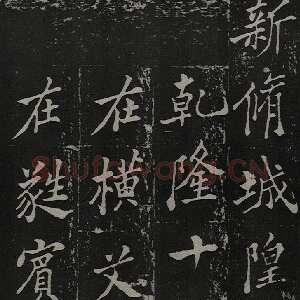 新脩城隍
乾隆十
在橫艾
在蕤賓
ShufaWang.CN